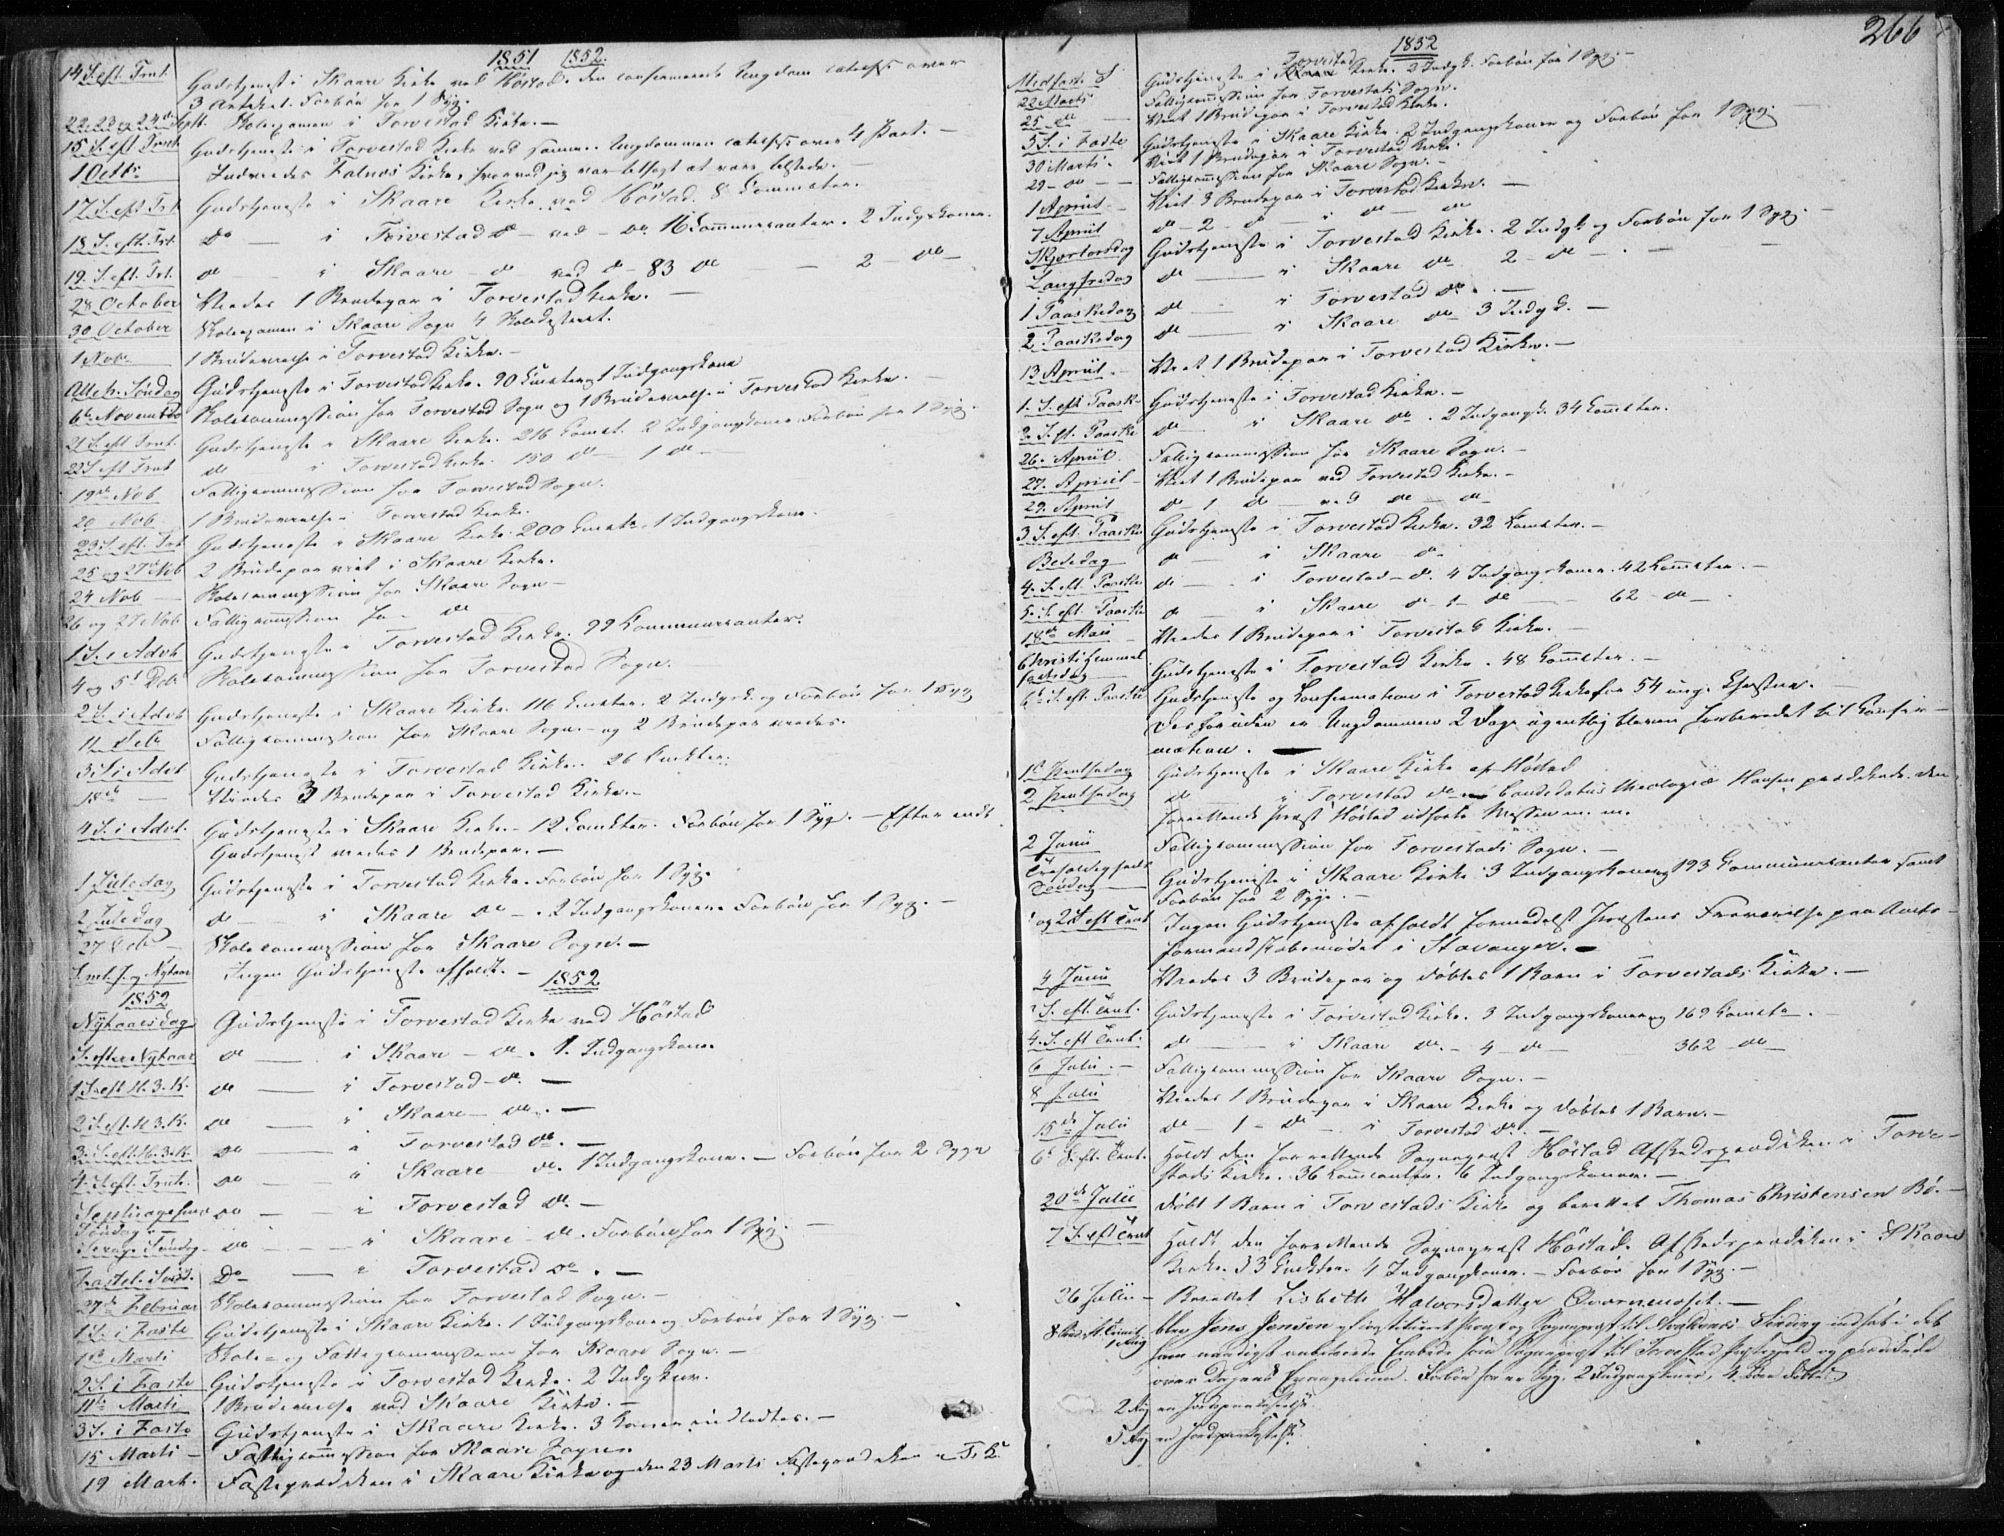 1851 1852.
14 S. eft. Trint. Gudstjeneste i Skaare Kirke ved Höstad. Den confirmerede Ungdom catechs. over
3 Artikel. Forbön for 1 Syg.
22, 23 og 24de Sept. Skoleexamen i Torvestad Kirke. —
15 S. eft. Trint. Gudstjeneste i Torvestad Kirke ved samme. Ungdommen catechs. over 4 Part. —
1 Octbr. Indviedes Falnæs Kirke, hvorved jeg var befalet at være tilstede. —
17 S. eft. Trt. Gudstjeneste i Skaare Kirke ved Höstad. 8 Commctr.
18 S. eft. Trt. Do — i Torvestad do — ved — do 16 Communicanter. 2 Indgskoner.
19. S. eft. Trt. do — i Skaare — do ved do — 83 do — 2 — do —
28 October Viedes 1 Brudepar i Torvestad Kirke. —
30 October Skoleexamen i Skaare Sogn 4 Skoledistrict.
1 Nobr. 1 Brudevielse i Torvestad Kirke. —
Alle h. Söndag Gudstjeneste i Torvestad Kirke. 90 Cmcter. 1 Indgangskone
6te November Skolecommission for Torvestad Sogn og 1 Brudevielse i Torvestad Kirke. —
21 S. eft. Trint. Gudstjeneste i Skaare Kirke. 216 Comct. 2 Indgangskoner. Forbön for 1 Syg.
22 S. eft. Trint do i Torvestad Kirke. 150 do — 1 do —
19de Nob Fattigcommission for Torvestad Sogn.
20 Nob. 1 Brudevielse i Torvestad Kirke.
23 S. eft. Trt Gudstjeneste i Skaare Kirke. 200 Cmctr. 1 Indgangskone.
25 og 27de Nob 2 Brudepar viet i Skaare Kirke.
24 Nob — Skolecommission for Skaare Sogn —
26 og 27 Nob. Fattigcommssion for do —
1 S. i Advt Gudstjeneste i Torvestad Kirke. 99 Kommunicanter.
4 og 5t Debr Skolecommission for Torvestad Sogn.
2 S. i Advt Gudstjeneste i Skaare Kirke. 116 Cmcter. 2 Indgsk. og Forbön for 1 Syg
11 Debr Fattigcommission for Skaare Sogn. — og 2 Brudepar viedes.
3 S. i Advt. Gudstjeneste i Torvestad Kirke. 26 Cmcter.
18de — Viedes 3 Brudepar i Torvestad Kirke. —
4 S. i Advt. Gudstjeneste i Skaare Kirke. — 12 Comcter. Forbön for 1 Syg. — Efter endt
Gudstjenest viedes 1 Brudepar. —
1 Juledag Gudstjeneste i Torvestad Kirke. Forbön for 1 Syg.
2 Juledag do — i Skaare do — . 2 Indgangskoner. Forbön for 1 Syg. —
27 Debr — Skolecommission for Skaare Sogn. —
S. ml. J. og Nytaar Ingen Gudstjeneste afholdt. —
1852
1852
Nytaarsdag Gudstjeneste i Torvestad Kirke ved Höstad
S. efter Nytaar do — i Skaare — do . 1. Indgangskone.
1 S. eft. H. 3. K. do — i Torvestad — do. —
2 S. eft. H. 3. K. do — i Skaare — do. —
3. S. eft. H. 3. K. do — i Torvestad do. —
4. S. eft. do — i Skaare do. 1 Indgangskone. — Forbön for 2 Syge
Septuagesima Söndag. — do — i Torvestad do. —
Sexag. Söndg. do — i Skaare — do. Forbön for 1 Syg. —
Fastel. Sönd. Do — i Torvestad do . —
27de Februar Skolecommission for Torvestad Sogn. —
1 S. i Faste Gudstjeneste i Skaare Kirke. 1 Indgangskone og Forbön for 1 Syg. —
1ste Marti Skole- og Fattigcommissionen for Skaare Sogn. —
2 S. i Faste Gudstjeneste i Torvestad Kirke. 2 Indgskoner.
11te Marti 1 Brudevielse ved Skaare Kirke. —
3 S. i Faste Gudstjeneste i Skaare Kirke. 3 Koner indledtes. —
15 Marti — Fattigcommission for Skaare Sogn.
19 Mart. Fasteprædiken i Skaare Kirke og den 23 Marti Fasteprædiken i T. K.
266
1852
Midfast. S Gudstjeneste i Torvestad Kirke. 2 Indgk. Forbön for 1 Syg. —
22 Marti Fattigcommission for Torvestads Sogn.
25 — do — Viet 1 Brudepar i Torvestad Kirke.
5 S. i Faste Gudstjeneste i Skaare Kirke. 2 Indgangskoner og Forbön for 1 Syg.
30 Marti. Viet 1 Brudepar i Torvestad Kirke.
29 — do — Fattigcommission for Skaare Sogn. —
1 April — Viet 3 Brudepar i Torvestad Kirke. —
7 April do — 2 — do — i — do — do
Skjertorsdag Gudstjeneste i Torvestad Kirke. 2 Indgk. og Forbön for 1 Syg. —
Langfredag do — i Skaare do — 2 — do —
1 Paaskedag do — i Torvestad do. —
2 Paaskedag do — i Skaare do — 3 Indgk. —
13 April. Viet 1 Brudepar i Torvestad Kirke. —
1. S. eft Paask. Gudstjeneste i Torvestad Kirke. —
2. S. eft. Paaske do — i Skaare do . 2 Indgangsk. 34 Comcter.
26. April. Fattigcommission for Skaare Sogn. —
27. April — Viet 1 Brudepar ved Torvestad Kirke. —
29. April do 1 do ved do — do —
3 S. eft. Paaske Gudstjeneste i Torvestad Kirke. 32 Comcter. —
Bededag do — i Skaare — do
4. S. eft. Paaske do — i Torvestad — do. 4 Indgangskoner. 42 Comcter. —
5. S. eft. Paaske do — i Skaare do — 1 — do — 62 — do — .
18de Mai Viedes 1 Brudepar i Torvestads Kirke. —
Christi Himmelfartsdag Gudstjeneste i Torvestad Kirke. 48 Comcter. —
6te S. eft. Paaske Gudstjeneste og Confirmation i Torvestad Kirke for 54 unge Christne. —
Desforuden er Ungdommen 2 Dage ugentlig bleven forberedet til Confir-
mation. —
1st Pintsedag Gudstjeneste i Skaare Kirke af Höstad
2 Pintsedag do — i Torvestad do — Candidatus theologiæ Hansen prædikede. den
forrettende Præst Höstad udförte Messen m. m.
2 Juni Fattigcommission for Torvestads Sogn. —
Trefoldigheds Söndag Gudstjeneste i Skaare Kirke. 3 Indgangskoner og 193 Communicanter samt
Forbön for 2 Syge. —
1 og 2 S. eft. Trint Ingen Gudstjeneste afholdt formedelst Præstens Fraværelse paa Amts-
formandskabsmödet i Stavanger. —
4 Juni Viedes 3 Brudepar og döbtes 1 Barn i Torvestads Kirke. —
3 S. eft. Trint. Gudstjeneste i Torvestad Kirke. 3 Indgangskoner og 169 Comctr.
4. S. eft Trint. do — i Skaare do. — 4 — do — 362 — do —
6 Juli. — Fattigcommission for Skaare Sogn. —
8 Juli Viedes 1 Brudepar i Skaare Kirke og döbtes 1 Barn. —
15de Juli do — 1 — do — i Torvestad do. —
6t S. eft. Trint. Holdt den forrettende Sognepræst Höstad Afskedsprædiken i Torve-
stads Kirke. 36 Comcanter. 6 Indgangskoner. —
20de Juli Döbt 1 Barn i Torvestads Kirke og berettet Thomas Christensen Bö. —
7 S. eft Trint Holdt den forrettende Sognepræst Höstad Afskedsprædiken i Skaare
Kirke. 33 Cmcter. 4 Indgangskoner. — Forbön for 1 Syg. —
26 Juli — Berettet Lisbeth Halvorsdatter Qværnenæset. —
8 Sönd. eft. Trinit. 1 Aug blev Jens Jensen af Provst og Sognepræst til indsat i det
ham naadigst Embede som Sognepræst til Torvestad Præstegjeld og prædikede
over Dagens Evangelium. Forbön for en Syg. 2 Indgangskoner, 4 Börn döbte.
2 Aug en
5 Aug en